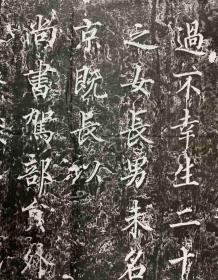 過不幸生二十
之女長男未名
京既長以
尚書駕部員外